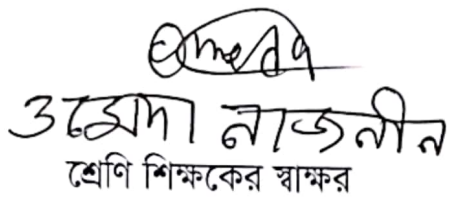 Omeda
ওমেদা নাজনীন
শ্রেণি শিক্ষকের স্বাক্ষর